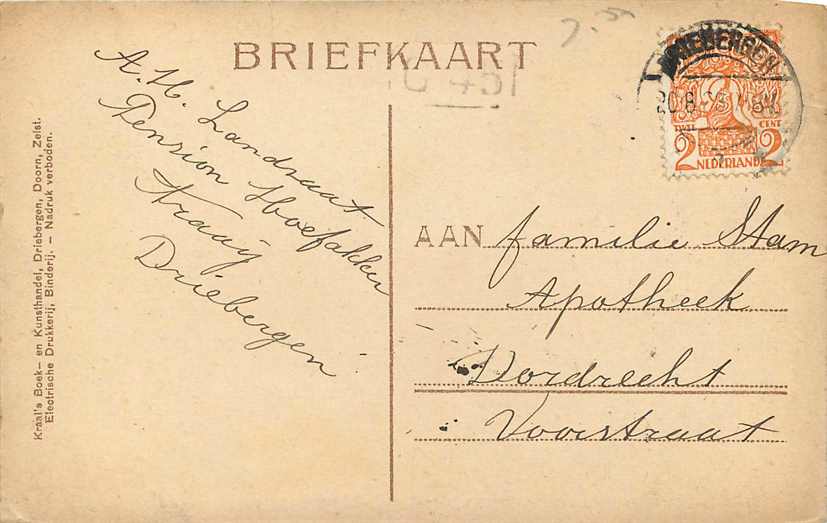 BRIEFKAART
A. H. Landsaat
Pension Hoefakker
Kraaij
Driebergen
AAN familie Stam
Apotheek
Dordrecht
Voorstraat
DRIEBERGEN
20.8
TWEE CENT
2 2
NEDERLAND
Kraal's Boek- en Kunsthandel, Driebergen, Doorn, Zeist.
Electrische Drukkerij, Binderij. - Nadruk verboden.